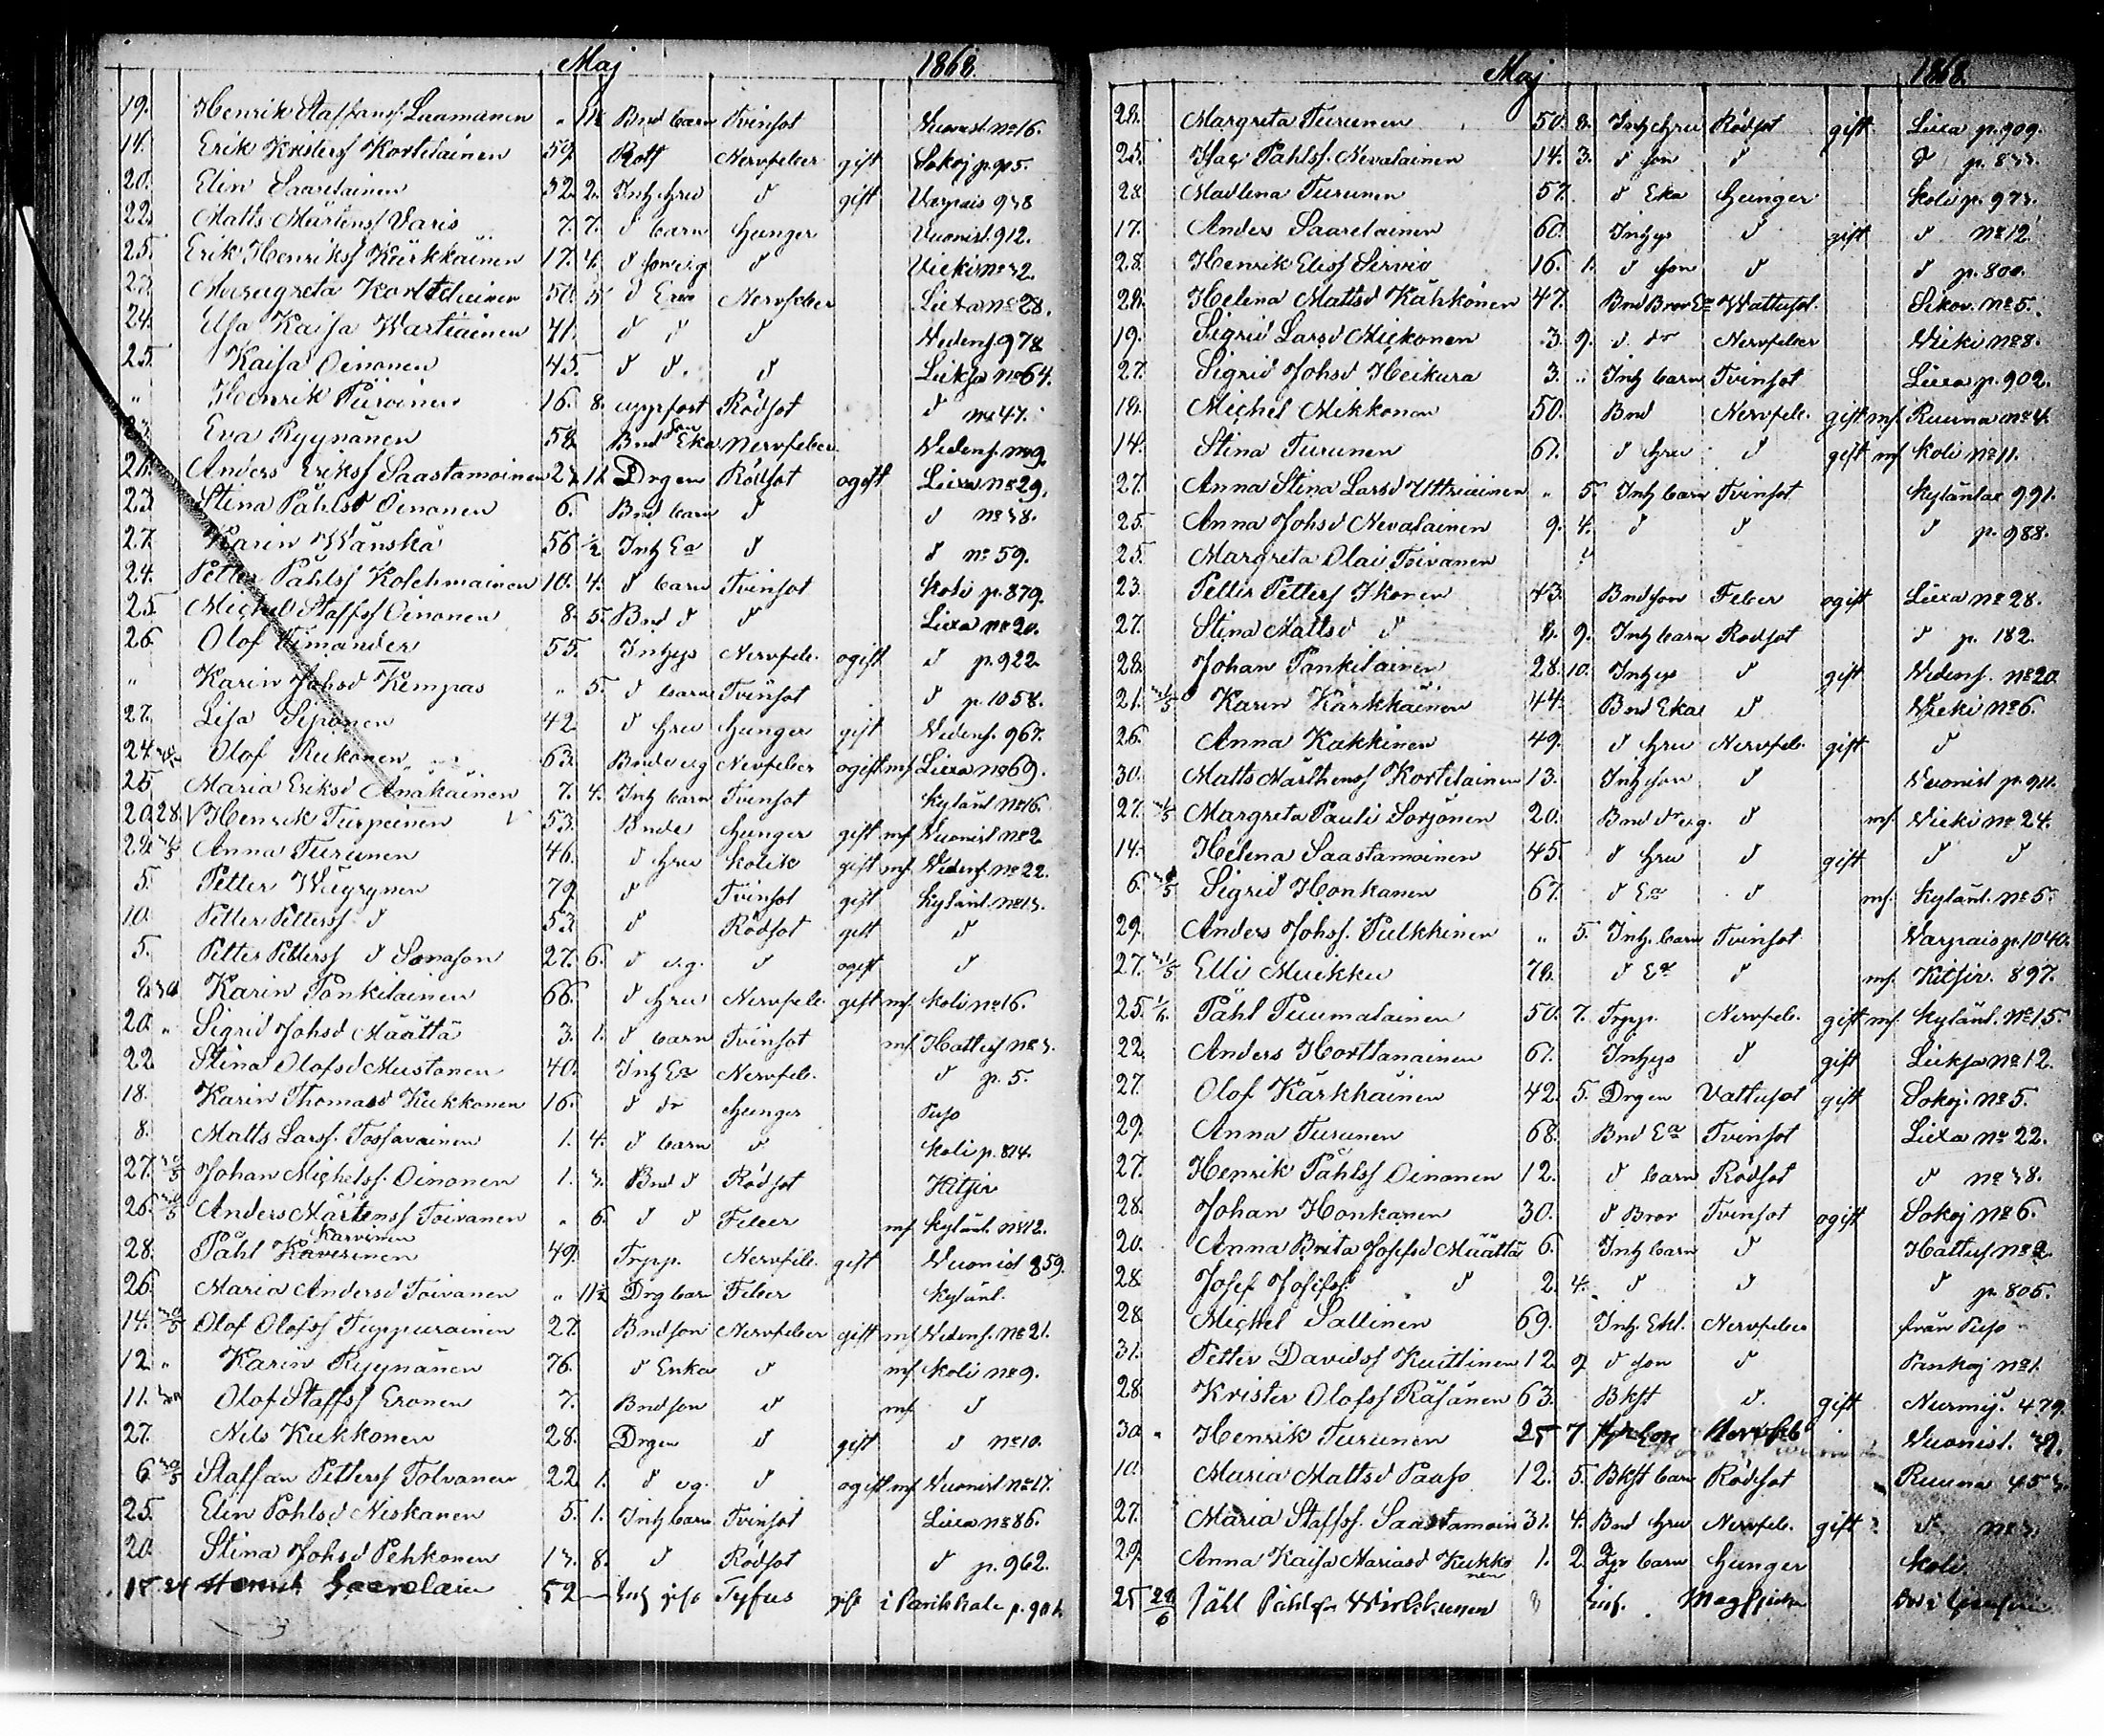 Maj 1868.
19. Henrik Staffanss. Luumanen " 11 Bnd barn Tvinsot Vuonisl. No 16.
14. Erik Kristerss Kortelainen 59. Rott Nervfeber gift Sokoj p. 905.
20. Elin Saarelainen 52. 2. Inh hru d gift Varpais 938
22. Matts Mårtenss Varis 7. 7. d barn Hunger Vuonisl. 912.
25. Erik Henrikss Kärkkäinen 17. 4. d son d Vieki No 32.
23. Margreta Kortelainen 50. 5. d Enka Nervfeber Lieksa No 28.
24. Elsa Kaisa Wartiainen 41. d d d Videns. 978
25. Kaisa Oinonen 45. d d. d Lieksa No 64.
" Henrik Piiroinen 16. 8. uppfost Rödsot d No 47.
Eva Ryynänen 58. Bnd Eka Nervfeber Videns. No 9.
21. Anders Erikss Saastamoinen 27. 11. Drgen Rödsot ogift Lixa No 29.
23. Stina Påhlsd Oinonen 6. Bnd barn d d No 38.
27. Karin Wänskä 56 1/2 Inh Ea d d No 59.
24. Petter Påhlss Kolehmainen 10. 4. d barn Tvinsot Koli p. 879.
25. Michel Staffss Oinonen 8. 5. Bnd d d Lixa No 20.
26. Olof Simander 55. Inhys Nervfeb. ogift d p. 922.
" Karin Johsd Kempas " 5. d barn Tvinsot d p. 1058.
27. Lisa Siponen 42. d hru Hunger gift Videns. 967.
24. Olof Kukonen 63. Bnde Nervfeber ogift mf. Lixa No 69.
25. Maria Eriksd Änäkäinen 7. 4. Inh barn Tvinsot Kylänl. No 16.
20. 28. V Henrik Turpeinen V 53. Bnde Hunger gift mf Vuonisl No 2.
28. 31/5 Anna Turunen 46. d hru Kolik gift mf. Videns. No 22.
5. Petter Wäyrynen 79. d Tvinsot gift Kylänl. No 13.
10. Petter Petterss. d 53. d Rödsot gift d
5. Petter Petterss d Sonason 27. 6. d d ogift d
8. 30 Karin Pankilainen 66. d hru Nervfeb. gift mf. Koli No 16.
20. " Sigrid Johsd Määttä 3. 1. d barn Tvinsot mf. Hattus No 3.
22. Stina Olofsd Mustonen 40. Inh Ea Nervfeb. d p. 5.
18. Karin Thomasd Kukkonen 16. d dr Hunger Puso
8. Matts Larss. Tossavainen 1. 4. d barn d Koli p. 814.
27. 30/5 Johan Michelss. Oinonen 1. 3. Bnd d Rödsot Kitsir
26. 30/5 Anders Mårtenss Toivanen " 6. d d Feber mf Kylänl. No 12.
Karvinen
28. Påhl Kaverinen 49. Trpp. Nervfeb. gift Vuonisl 859.
26. Maria Andersd Toivanen " 11 1/2 Drg barn Feber Kylänl.
14. 30/5 Olof Olofss Tuppurainen 27. Bndson Nervfeber gift mf Videns. No 21.
12. " Karin Ryynänen 76. d Enka d mf Koli No 9.
11. Olof Staffss Eronen 7. Bndson d mf d
27. Nils Kukkonen 28. Drgen d gift d No 10.
6. 30/5 Staffan Petterss Tolvanen 22. 1. d d ogift mf Vuonisl No 17.
25. Elin Påhlsd Niskanen 5. 1. Inh barn Tvinsot Lixa No 86.
20. Stina Johsd Pehkonen 13. 8. d Rödsot d p. 962.
15 24 Henrik Saarelain 52 — Inh Tyfus gift i Parikkala
Maj 1868.
28. Margreta Turunen 50. 8. Inh hru Rödsot gift Lixa p. 909.
25. Isac Påhlss. Nevalainen 14. 3. d son d d p. 833.
28. Madlena Turunen 57. d Eka Hunger Koli p. 973.
17. Anders Saarelainen 60. Inhys d gift d No 12.
28. Henrik Eliss Sirviö 16. 1. d son d d p. 800.
28. Helena Mattsd Kähkönen 47. Bnd Bror Ea Wattusot. Sikov. No 5.
19. Sigrid Larsd Mickonen 3. 9. d. dr Nervfeber Wieki No 8.
27. Sigrid Johsd Heikura 3. " Inh barn Tvinsot Lixa p. 902.
18. Michel Mikkonen 50. Bnd Nervfeb. gift mf. Ruuna No 4.
14. Stina Turunen 61. d hru d gift mf Koli No 11.
27. Anna Stina Larsd Uttriainen " 5. Inh barn Tvinsot Kylänlax 991.
25. Anna Johsd Nevalainen 9. 4. d d d p. 988.
25. Margreta Olai Toivanen ?
23. Petter Petterss Ikonen 43. Bndson Feber ogift Lixa No 28.
27. Stina Mattsd d 8. 9. Inh barn Rödsot d p. 182.
28. Johan Pankilainen 28. 10. Inhys d gift Videns. No 20.
21. 31/5 Karin Kärkkäinen 44. Bnd Eka d Wieki No 6.
26. Anna Kukkinen 49. d hru Nervfeb. gift d
30. Matts Mårthenss Kortelainen 13. Inh son d Vuonisl p. 911.
27. 31/5 Margreta Pauli Sorjonen 20. Bnd d mf. Wieki No 24.
14. Helena Saastamoinen 45. d hru d gift d d
6. Sigrid Honkanen 67. d Ea d mf. Kylänl. No 5.
29. Anders Johss. Pulkkinen " 5. Inh. barn Tvinsot Varpais p. 1040.
27. 31/5 Elli Muikku 78. d Ea d mf. Kitsir. 897.
25. Påhl Puumalainen 50. 7. Trpp. Nervfeb. gift mf. Kylänl. No 15.
22. Anders Horttanainen 61. Inhys d gift Lieksa No 12.
27. Olof Kärkkäinen 42. 5. Drgen Vattusot gift Sokoj. No 5.
29. Anna Turunen 68. Bnd Ea Tvinsot Lixa No 22.
27. Henrik Påhlss Oinonen 12. d barn Rödsot d No 38.
28. Johan Honkanen 30. d Bror Tvinsot ogift Sokoj No 6.
20. Anna Brita Josefsd Määttä 6. Inh barn d Hattus No 2.
28. Josef Josefss. d 2. 4. d d d p. 805.
28. Michel Sallinen 69. Inh. Ekl. Nervfeber från Puso
31. Petter Davidss Kuittinen 12. 9. d son d Pankaj No 1.
28. Krister Olofss Räsänen 63. Bkft d. gift Nurmis. 479.
30. " Henrik Turunen 25 7 Nervfeb Vuonisl. 39.
10. Maria Mattsd Paaso 12. 5. Bkft barn Rödsot Ruuna 453.
27. Maria Staffss. Saastamoin 31. 4. Bnd hru Nervfeb. gift d No 3.
29. Anna Kaisa Mariasd Kukkonen 1. 2. barn Hunger Koli
25 28/6 Påhl Påhlsson 8